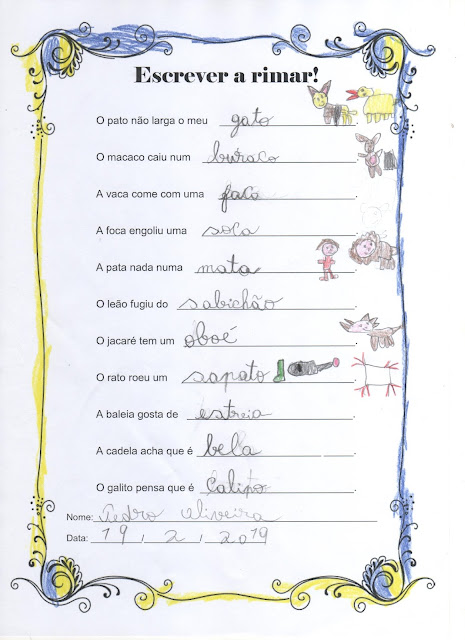 Escrever a rimar!
O pato não larga o meu gato.
O macaco caiu num buraco.
A vaca come com uma faca.
A foca engoliu uma.
A pata nada numa mata.
O leão fugiu do sabichão.
O jacaré tem um oboé.
O rato roeu um sapato.
A baleia gosta de estreia.
A cadela acha que é bela.
O galito pensa que é Calipo.
Nome: Pedro Oliveira
Data: 19 / 2 / 2019